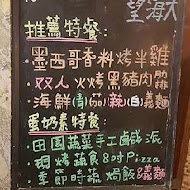 望海大
推薦特餐:
·墨西哥香料烤半雞
·双人火烤黑豬肉肋
·海鮮(青)(辣)(白)義麵
蛋奶素特餐:
·田園蔬菜手工鹹派
·現烤蔬食8吋Pizza
·季節時蔬焗飯&義麵